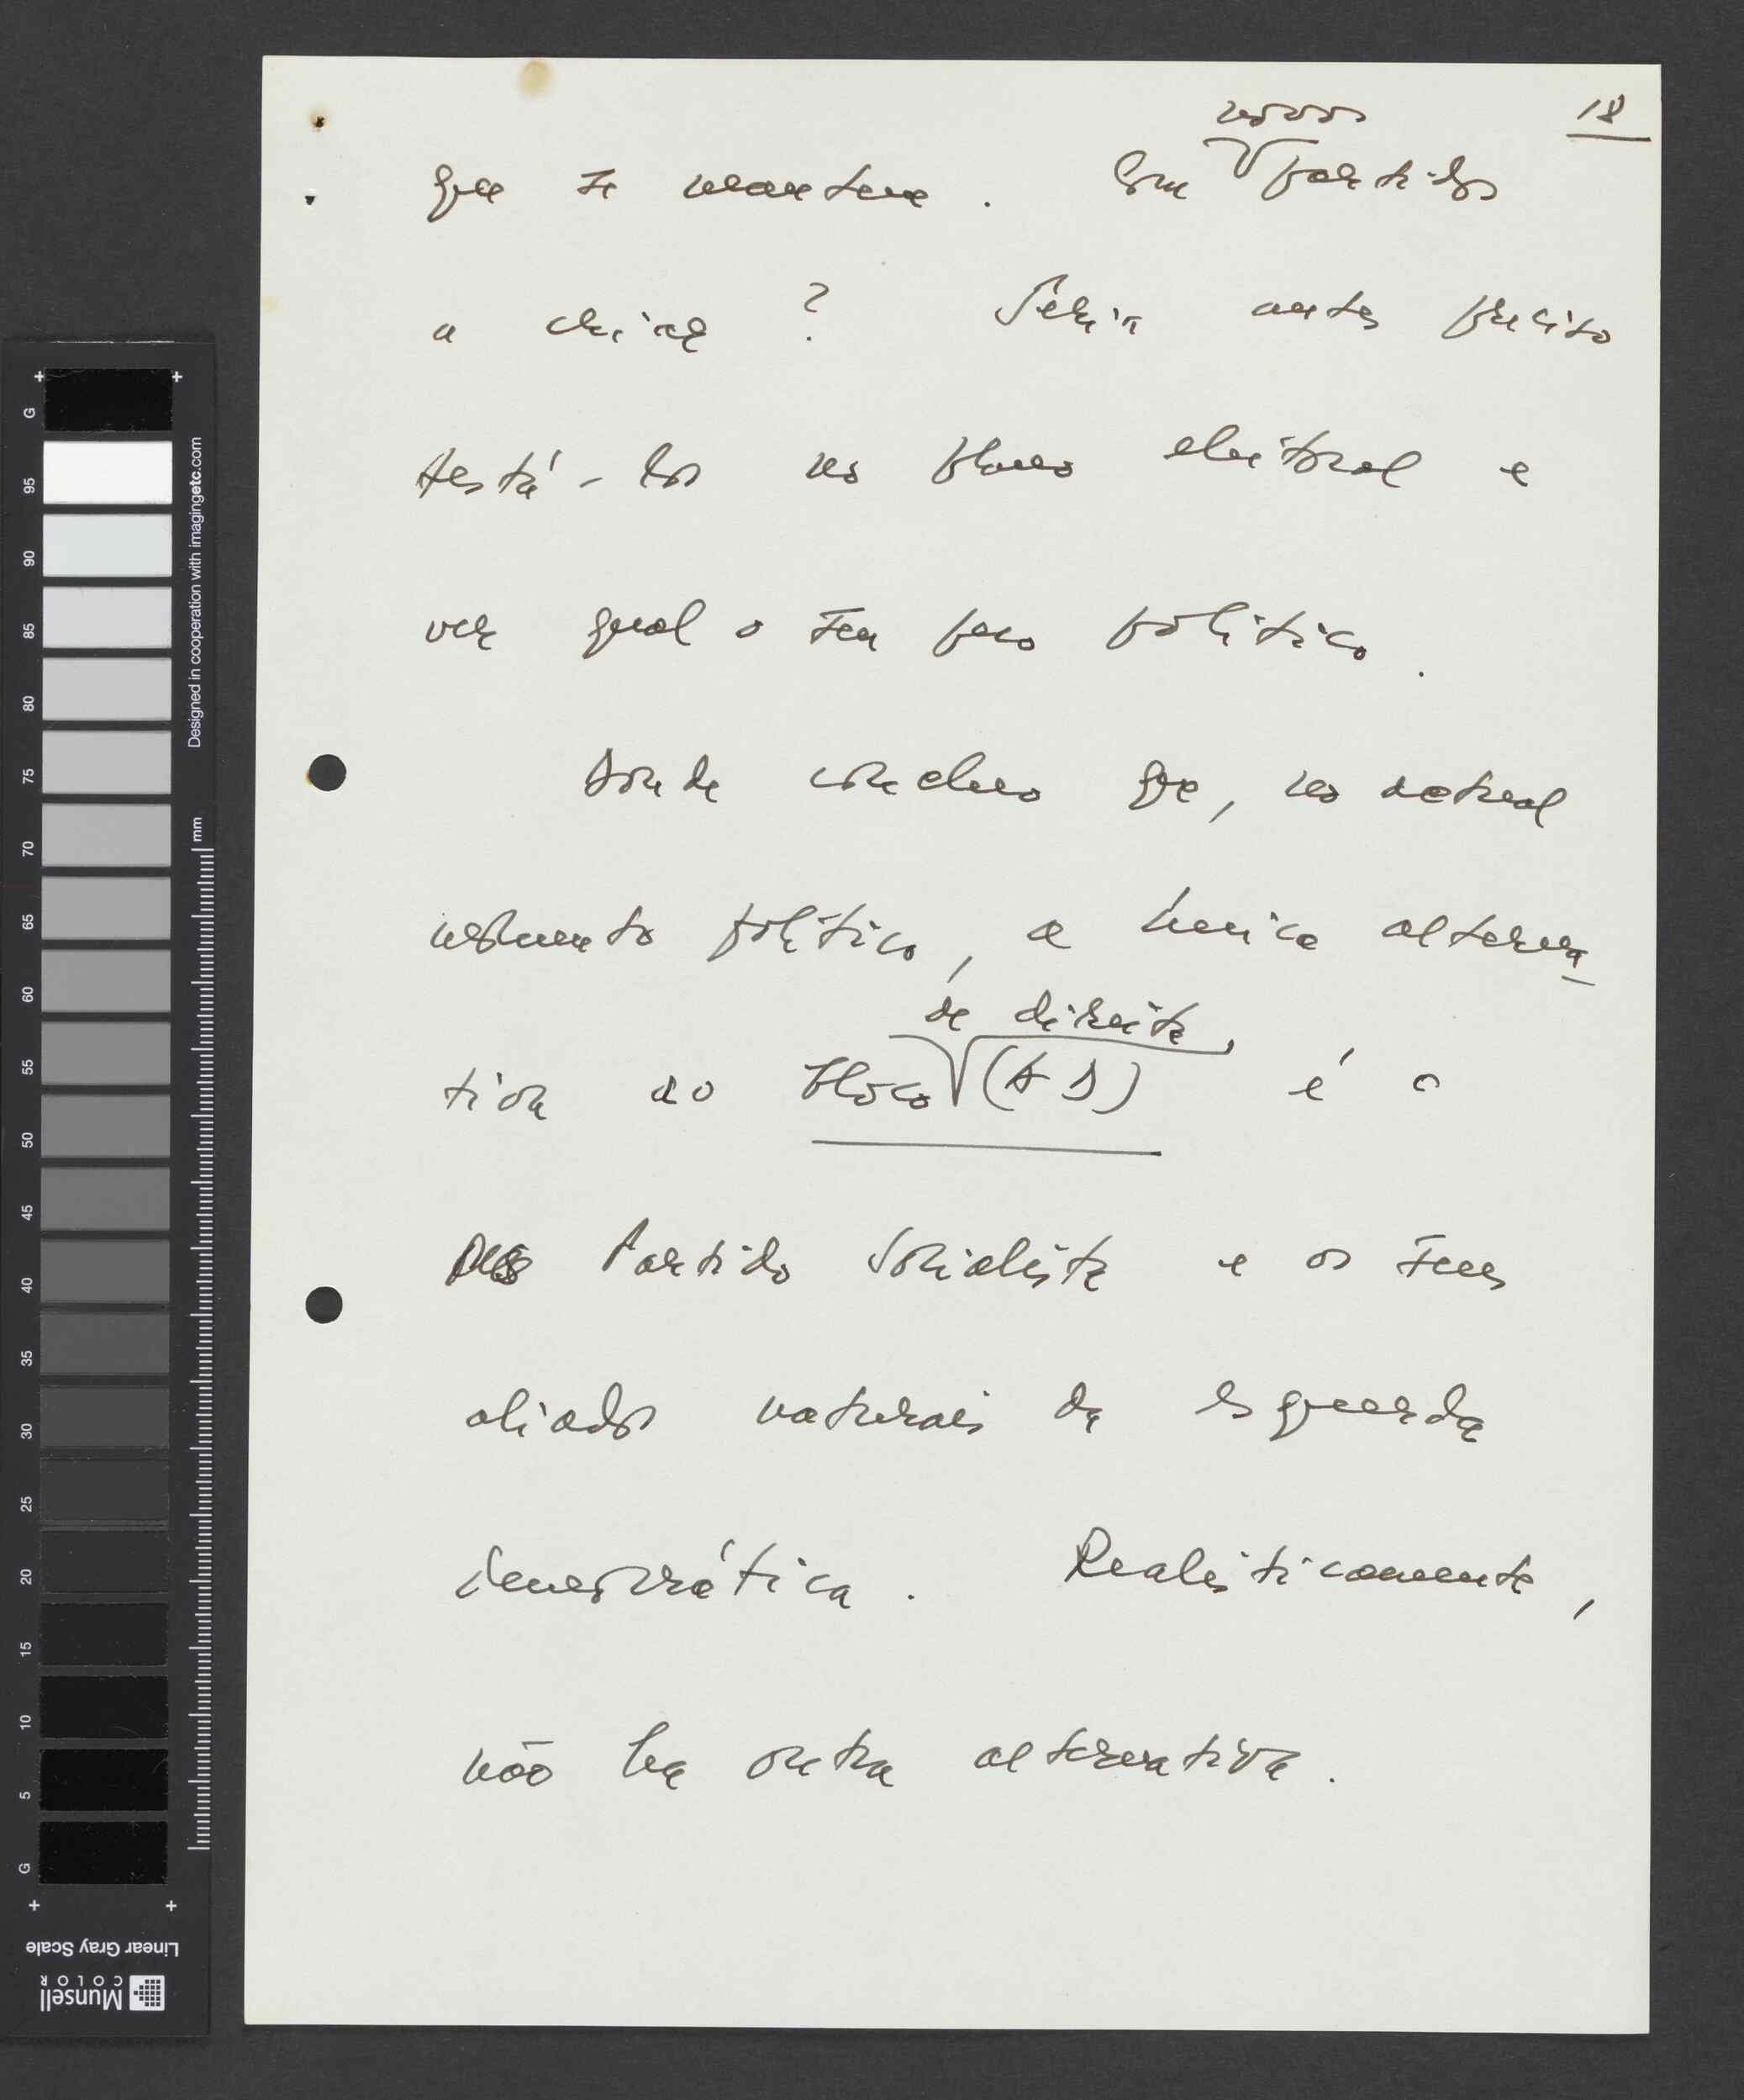 18
novos
que se mantem. Com partidos
a criar? Seria antes preciso
testá-los no plano eleitoral e
ver qual o seu peso político.
Donde concluo que, no actual
momento político, a única alterna
de direita,
tiva ao bloco (AD) é o
Partido Socialista e os seus
aliados naturais da esquerda
democrática. Realisticamente,
não ha outra alternativa.
G
95
90
85
80
75
70
65
60
55
50
45
40
35
30
25
20
15
10
5
G
mm
Designed in cooperation with imagingetc.com
Linear Gray Scale
Munsell
COLOR